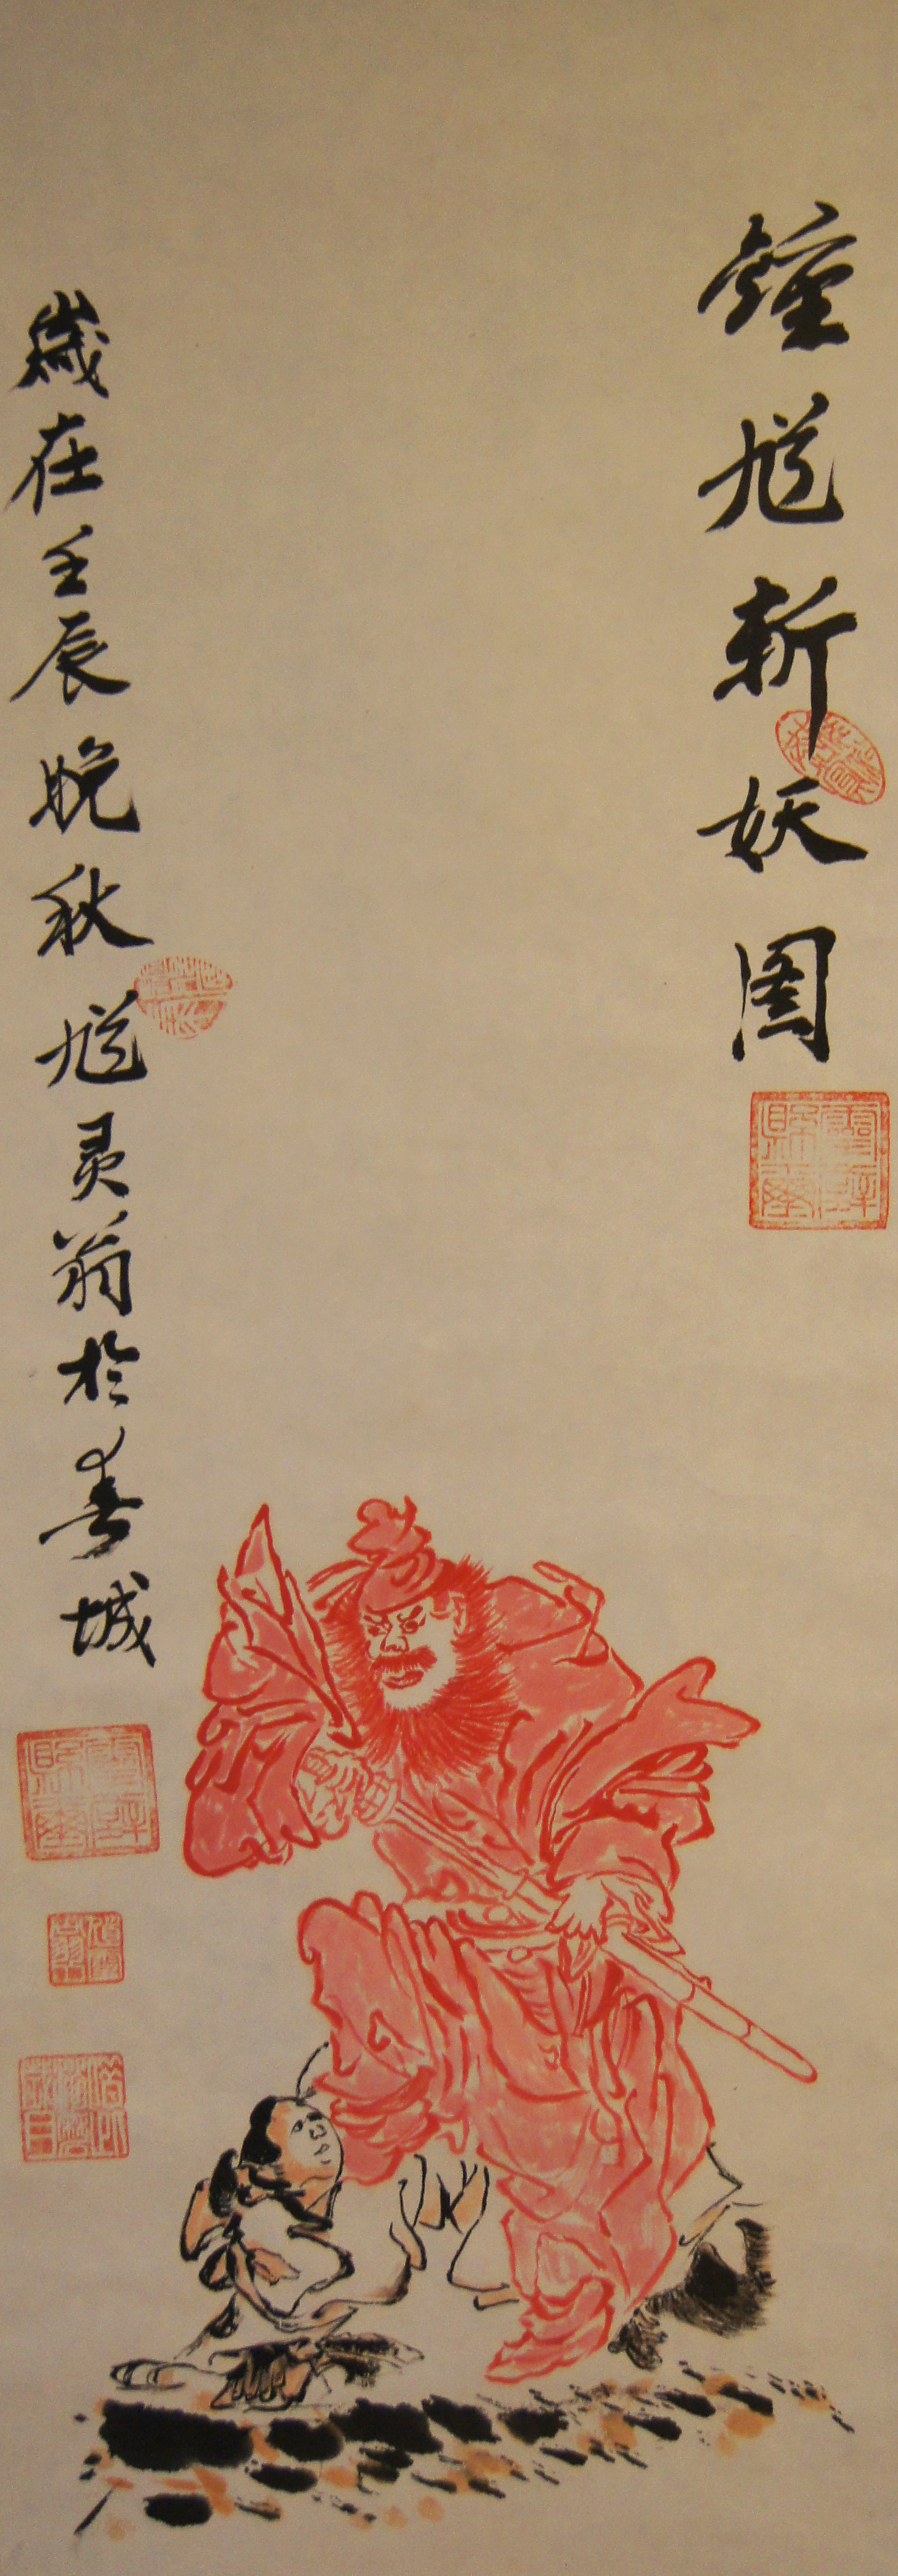 鍾馗斬妖图
歲在壬辰晚秋馗灵翁於春城